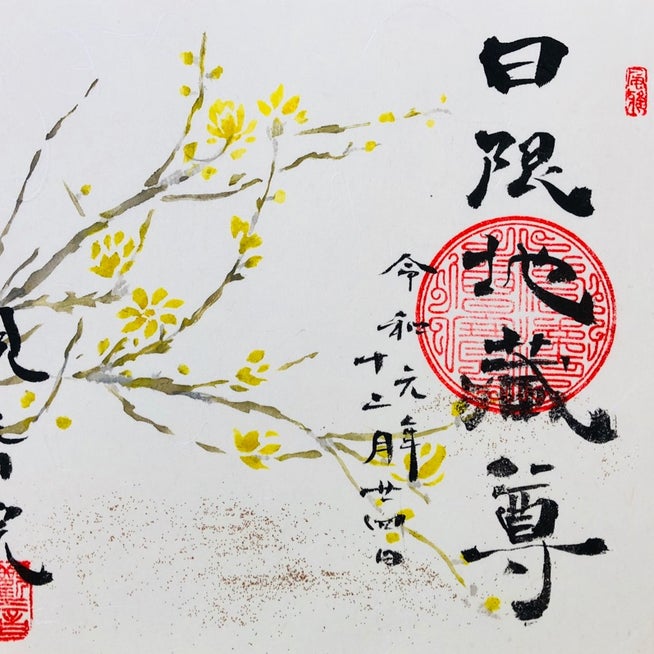 日限地蔵尊
令和元年
十二月廿四日